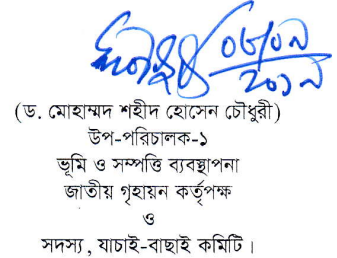 ০৮/০৯
২০১৯
(ড. মোহাম্মদ শহীদ হোসেন চৌধুরী)
উপ-পরিচালক-১
ভূমি ও সম্পত্তি ব্যবস্থাপনা
জাতীয় গৃহায়ন কর্তৃপক্ষ
ও
সদস্য, যাচাই-বাছাই কমিটি।